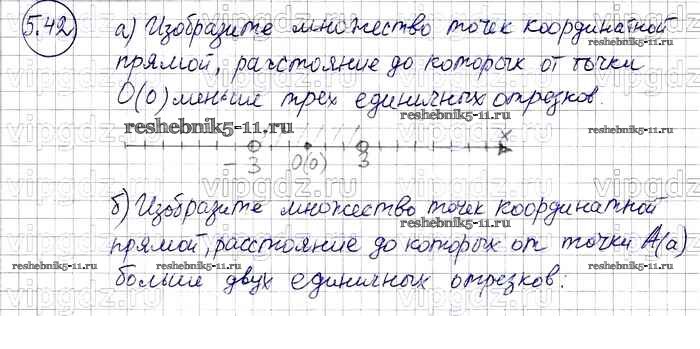 5.42
а) Изобразите множество точек координатной
прямой, расстояние до которых от точки
О(о) меньше трех единичных отрезков.
reshebnik5-11.ru
reshebnik5-11.ru
x
-3 О(о) 3
reshebnik5-11.ru
б) Изобразите множество точек координатной
reshebnik5-11.ru
прямой, расстояние до которых от точки А(а)
reshebnik5-11.ru
reshebnik5-11.ru
больше двух единичных отрезков:
vipgdz.ru